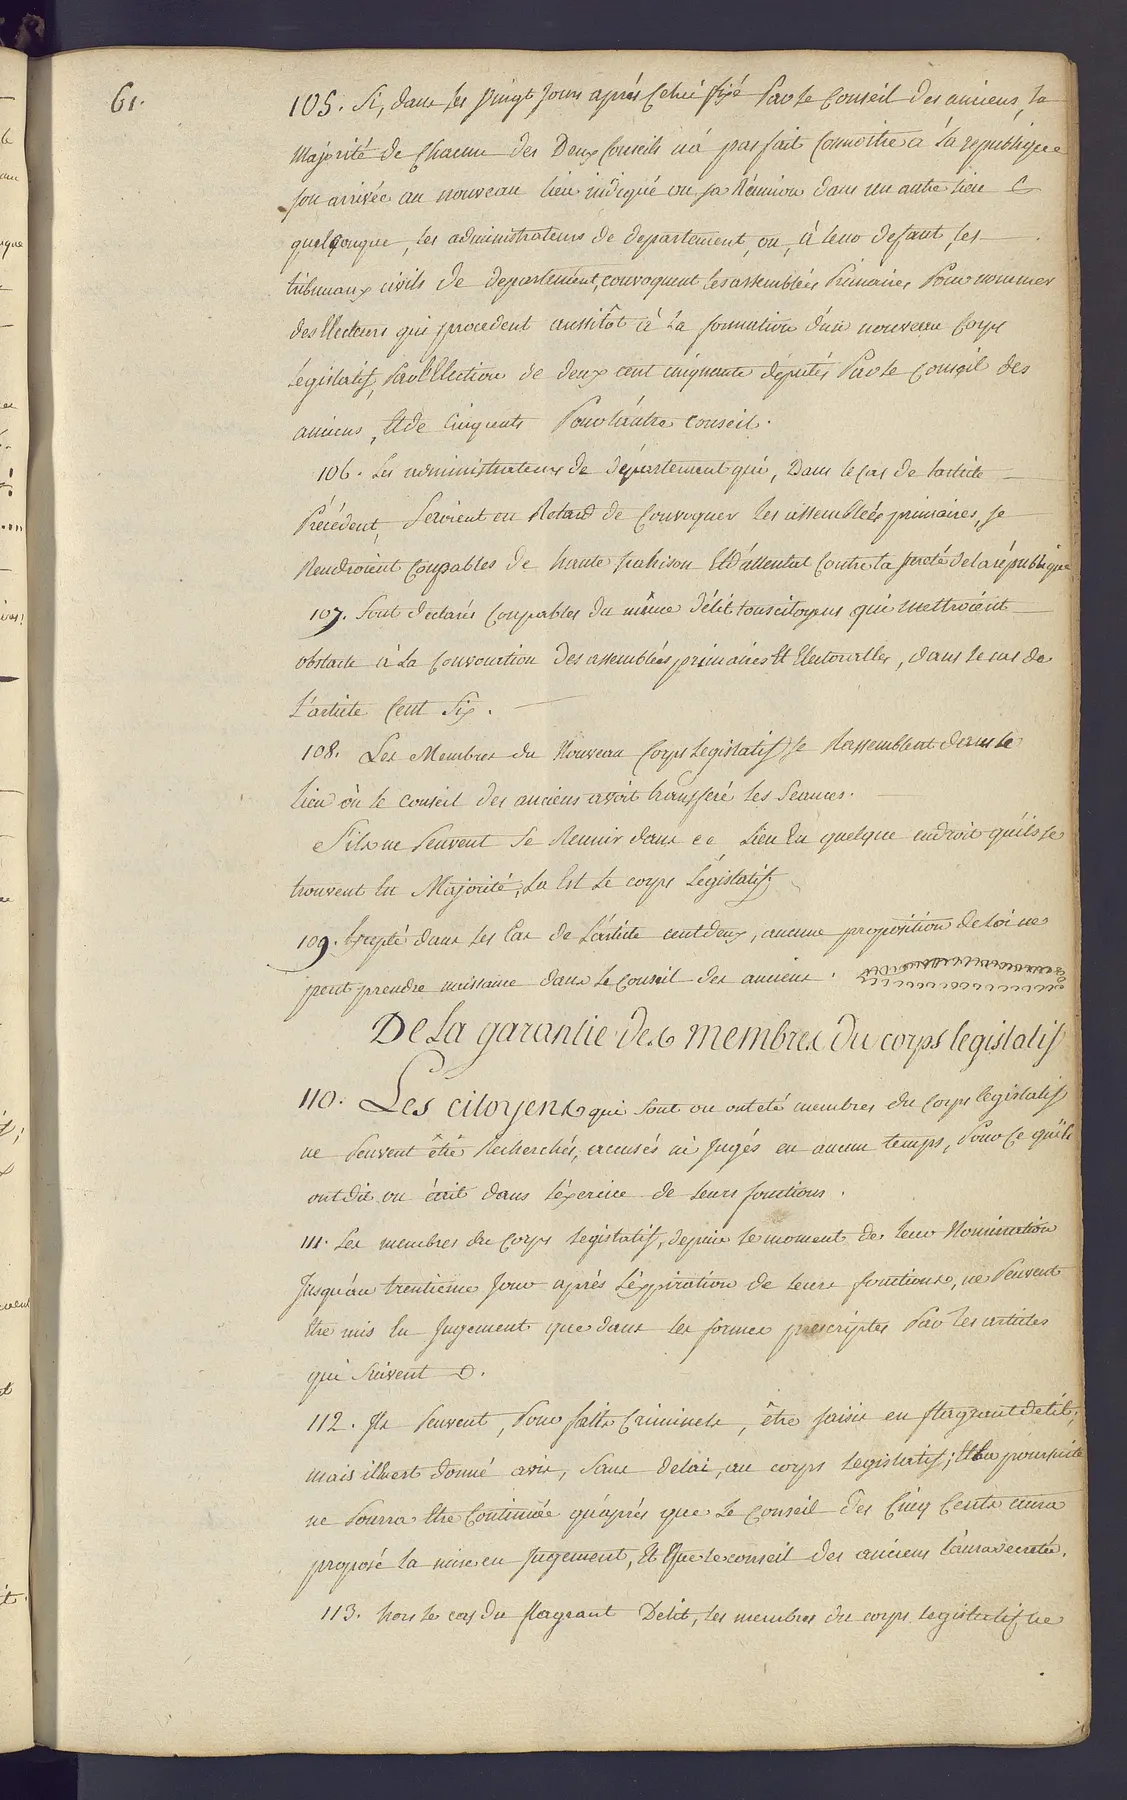 61.
105. Si, dans les vingt Jours aprés Celui fixé Par le Conseil des anciens, la
Majorité de Chacun des Deux Conseils n'a pas fait Connoitre a la republique
son arrivée au nouveau lieu indiqué ou sa Réunion dans un autre lieu
quelconque, les administrateurs de departement, ou, à leur defaut, les
tribunaux civils de departement, convoquent les assemblées Primaires Pour nommer
des Electeurs qui procedent aussitôt à la formation d'un nouveau Corps
Legislatif, Par l'Election de deux cent cinquante députés Par le Conseil des
anciens, Et de Cinq cents Pour l'autre Conseil.
106. Les administrateurs de département qui, Dans le Cas de l'article
Précédent, Seroient en Retard de Convoquer les assemblées primaires, se
Rendroient Coupables de haute trahison Et d'attentat Contre la sureté de la république
107. Sont declarés Coupables du même délit tous citoyens qui mettroient
obstacle à la Convocation des assemblées primaires Et Electoralles, dans le cas de
L'article Cent Six.
108. Les Membres du Nouveau Corps Legislatif se Rassemblent dans le
lieu où le conseil des anciens avoit transferé les Seances.
S'ils ne Peuvent Se Reunir dans ce Lieu En quelque endroit qu'ils se
trouvent En Majorité, La Est Le corps Législatif.
109. Excepté dans les Cas de L'article cent deux, aucune proposition de loi ne
peut prendre naissance dans le Conseil des anciens.
De La garantie des membres du corps legislatif
110. Les citoyens qui sont ou ont été membres du Corps legislatif
ne Peuvent être Recherchés, accusés ni Jugés en aucun temps, Pour Ce qu'ils
ont dit ou écrit dans l'éxercice de leurs fonctions.
111. Les membres du Corps Legislatif, depuis le moment de leur Nomination
Jusqu'au trentieme Jour aprés l'éxpiration de leurs fonctions, ne Peuvent
Etre mis En Jugement que dans les formes prescriptes Par les articles
qui Suivent.
112. Ils Peuvent, Pour faits Criminels, être saisis en flagrant delit;
mais il En est donné avis, Sans delai, au corps Legislatif; Et la poursuite
ne Pourra Etre Continuée qu'aprés que Le Conseil des Cinq Cents aura
proposé la mise en Jugement, Et Que le conseil des anciens l'aura decretée.
113. hors le cas du flagrant Delit, les membres du corps legislatif, ne